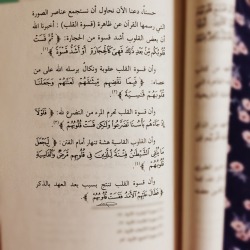 حسناً، دعنا الآن نحاول أن نستجمع عناصر الصورة
التي رسمها القرآن عن ظاهرة (قسوة القلب): أخبرنا الله
أن بعض القلوب أشد قسوة من الحجارة: ﴿ثُمَّ قَسَتْ
قُلُوبُكُمْ مِنْ بَعْدِ ذَٰلِكَ فَهِيَ كَالْحِجَارَةِ أَوْ أَشَدُّ قَسْوَةً﴾
وأن قسوة القلب عقوبة ونكال يرسله الله على من
﴿فَبِمَا نَقْضِهِمْ مِيثَاقَهُمْ لَعَنَّاهُمْ وَجَعَلْنَا
قُلُوبَهُمْ قَاسِيَةً﴾
وأن قسوة القلب تحرم المرء من التضرع لله: ﴿فَلَوْلَا
إِذْ جَاءَهُمْ بَأْسُنَا تَضَرَّعُوا وَلَٰكِنْ قَسَتْ قُلُوبُهُمْ﴾
وأن القلوب القاسية هشة تنهار أمام الفتن: ﴿لِيَجْعَلَ
مَا يُلْقِي الشَّيْطَانُ فِتْنَةً لِلَّذِينَ فِي قُلُوبِهِمْ مَرَضٌ وَالْقَاسِيَةِ
قُلُوبُهُمْ﴾
وأن قسوة القلب تنتج بسبب بعد العهد بالذكر
﴿فَطَالَ عَلَيْهِمُ الْأَمَدُ فَقَسَتْ قُلُوبُهُمْ﴾